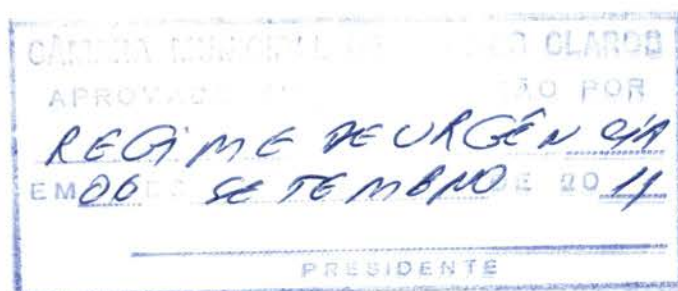 CÂMARA MUNICIPAL CLAROS
APROVADO ÃO POR
REGIME DE URGÊNCIA
EM 06 SETEMBRO DE 2011
PRESIDENTE